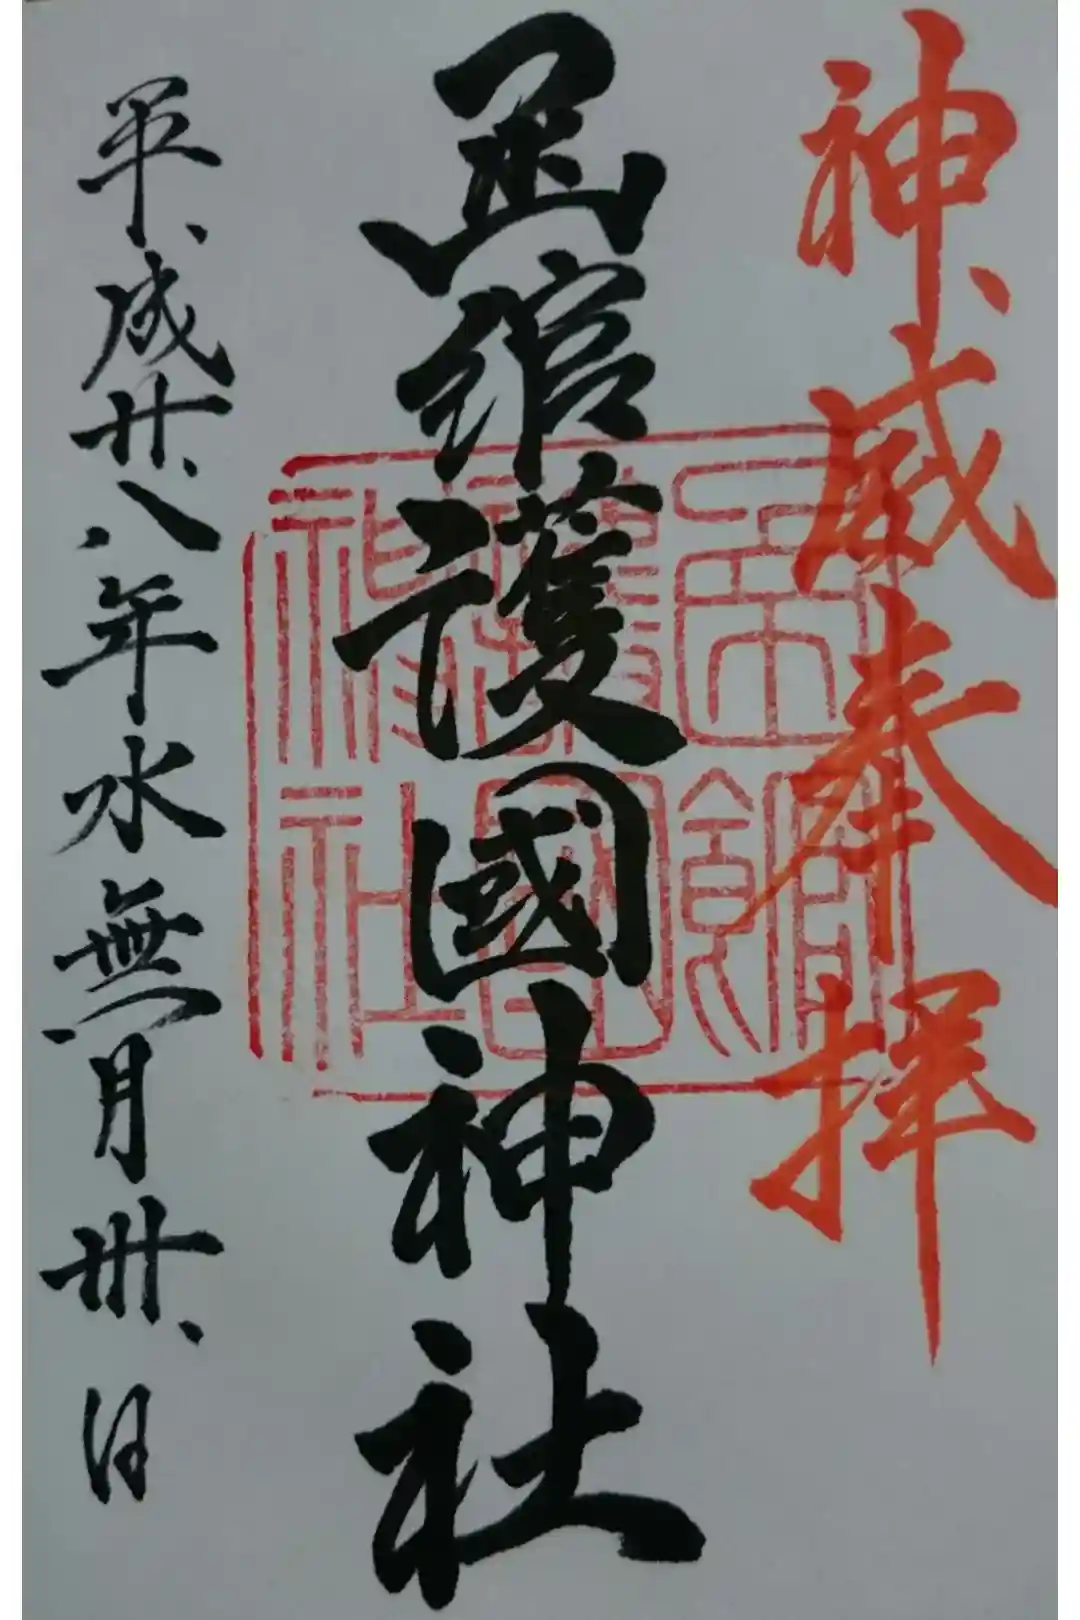 神威奉拝
函館護國神社
平成廿八年水無月卅日
函館護國神社